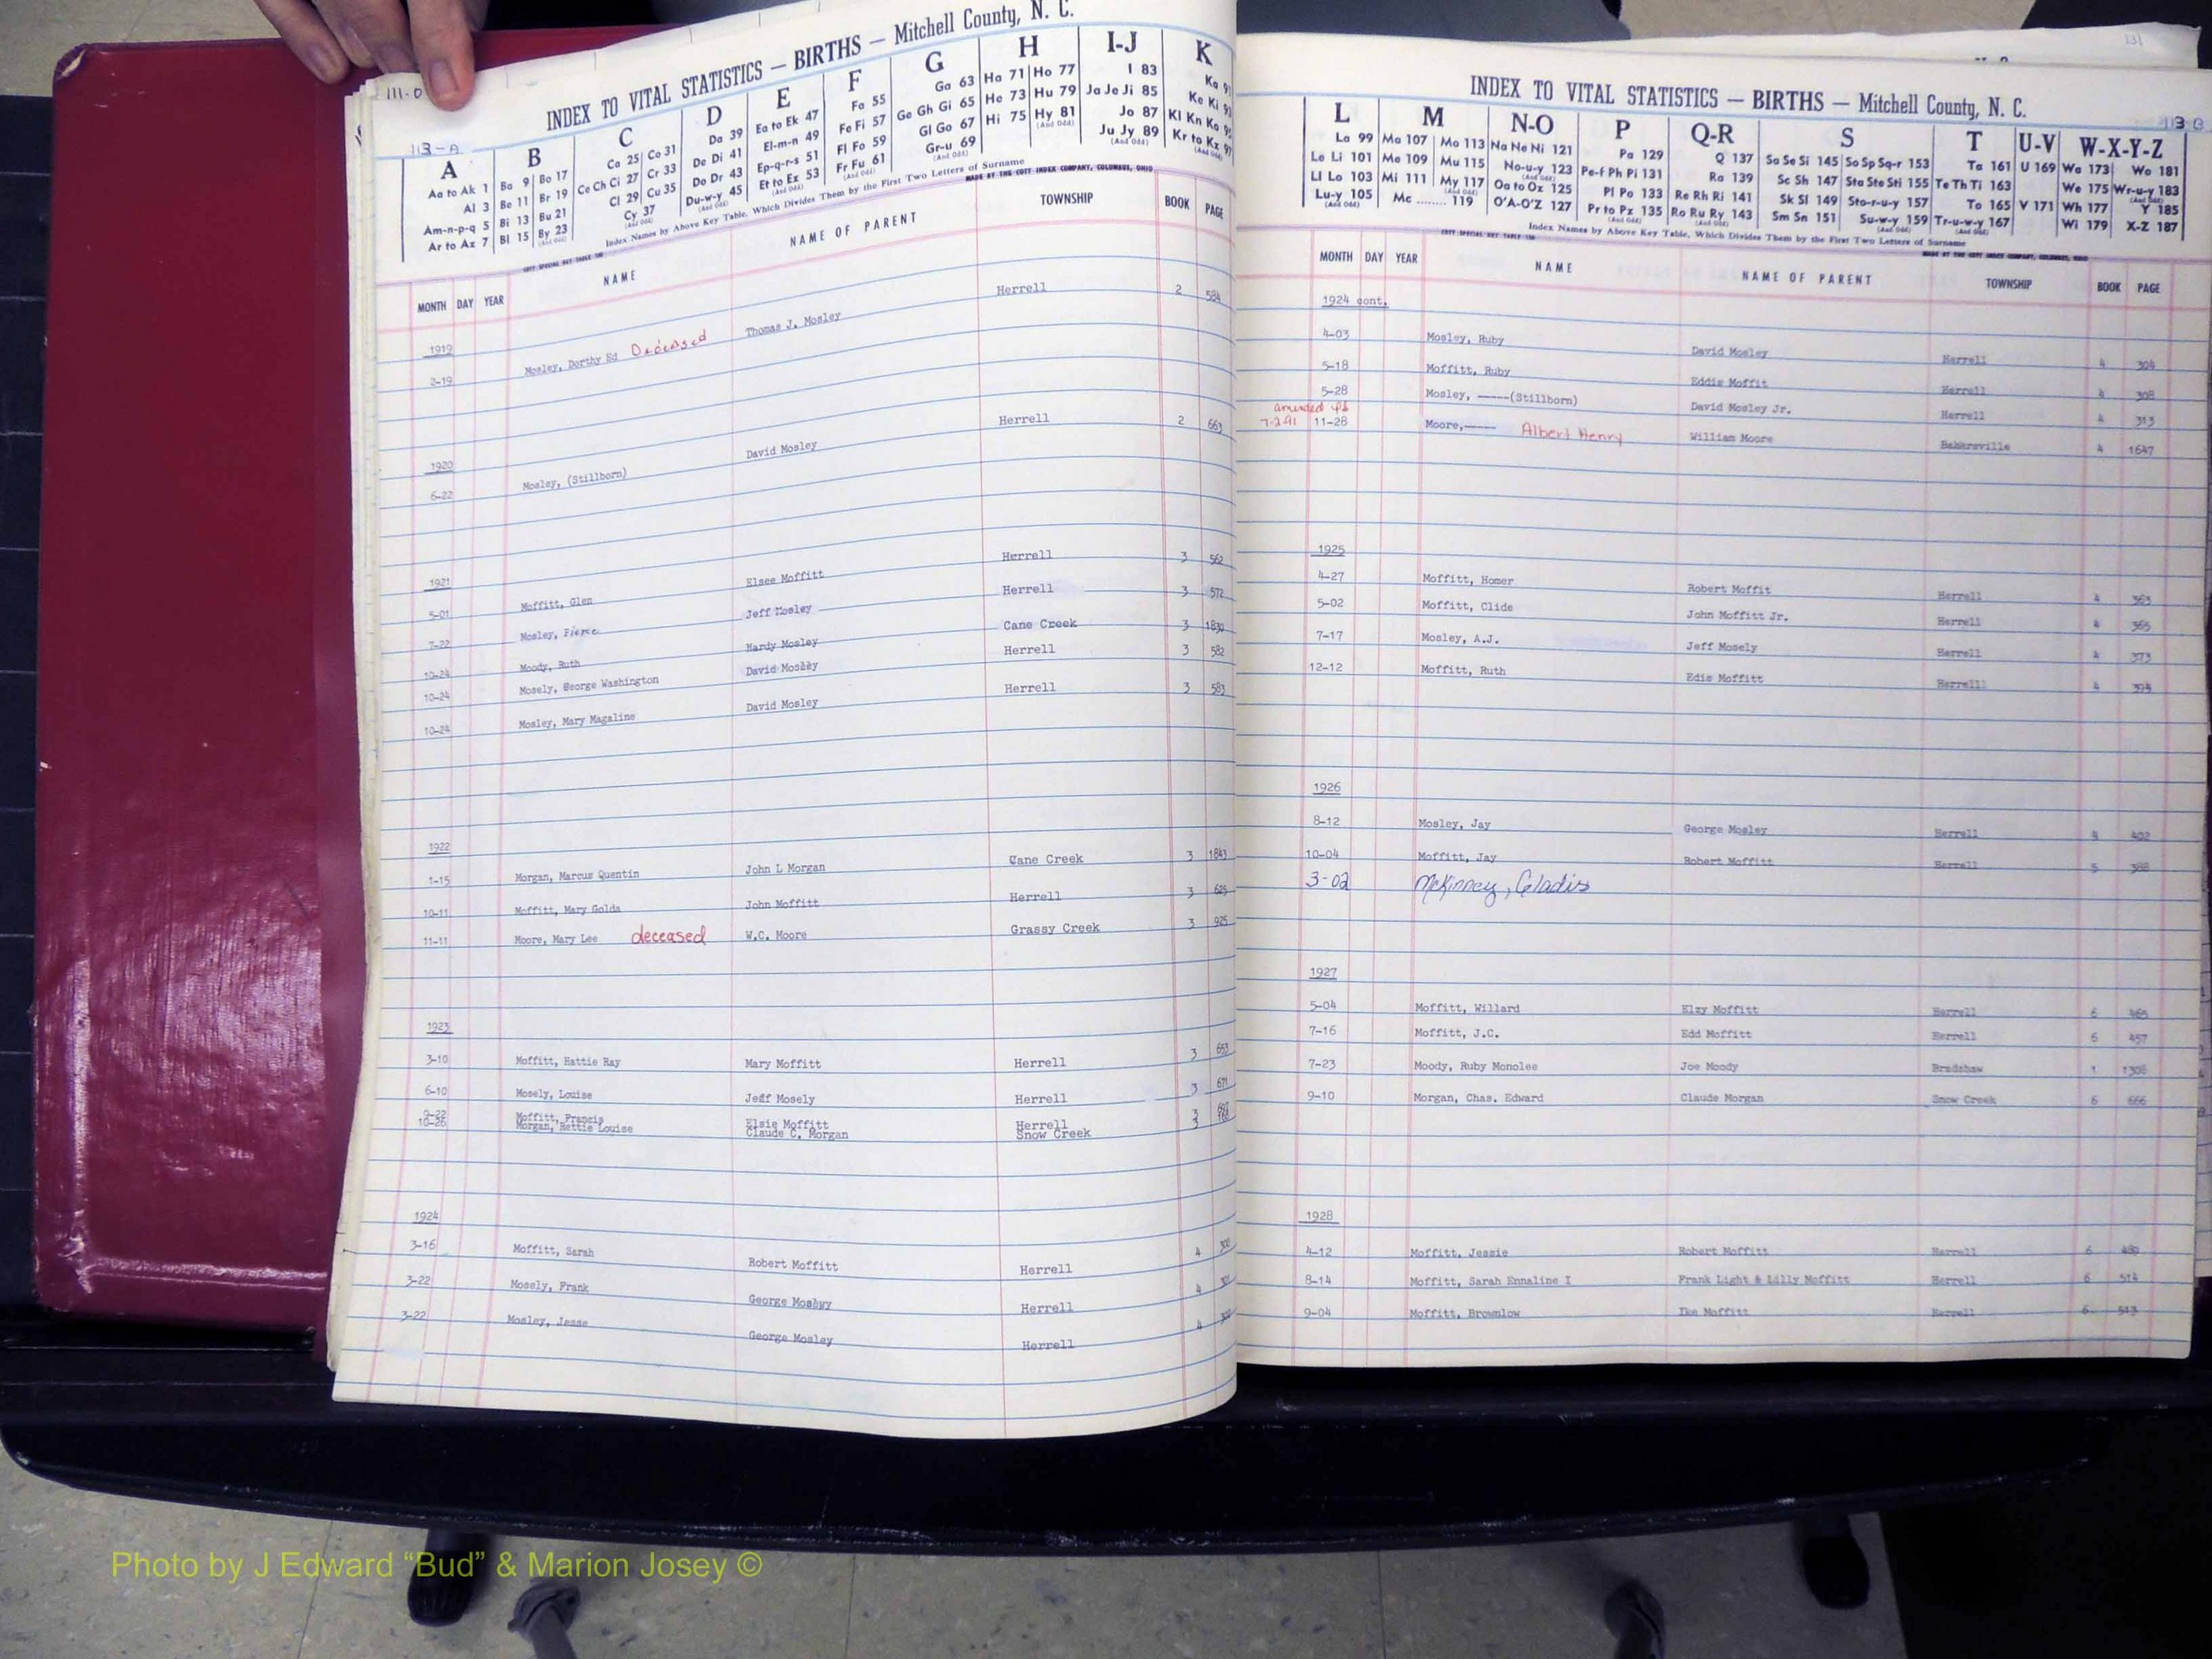 INDEX TO VITAL STATISTICS — BIRTHS — Mitchell County, N. C.
113-A
A B C D E F G H I-J K
Aa to Ak 1 Ba 9 Bo 17 Ca 25 Co 31 Da 39 Ea to Ek 47 Fa 55 Ga 63 Ha 71 Ho 77 I 83
Al 3 Be 11 Br 19 Ce Ch Ci 27 Cr 33 De Di 41 El-m-n 49 Fe Fi 57 Ge Gh Gi 65 He 73 Hu 79 Ja Je Ji 85
Am-n-p-q 5 Bi 13 Bu 21 Cl 29 Cu 35 Do Dr 43 Ep-q-r-s 51 Fl Fo 59 Gl Go 67 Hi 75 Hy 81 Jo 87
Ar to Az 7 Bl 15 By 23 Cy 37 Du-w-y 45 Et to Ez 53 Fr Fu 61 Gr-u 69 Ju Jy 89
Index Names by Above Key Table, Which Divides Them by the First Two Letters of Surname
MADE BY THE COTT INDEX COMPANY, COLUMBUS, OHIO
MONTH DAY YEAR NAME NAME OF PARENT TOWNSHIP BOOK PAGE
1919
2-19 Mosley, Dorthy Ed Deceased Thomas J. Mosley Herrell 2 584
1920
6-22 Mosley, (Stillborn) David Mosley Herrell 2 663
1921
5-01 Moffitt, Glen Elsee Moffitt Herrell 3 562
7-22 Mosley, Pierce Jeff Mosley Herrell 3 572
10-24 Moody, Ruth Hardy Mosley Cane Creek 3 1830
10-24 Mosely, George Washington David Mosley Herrell 3 582
10-24 Mosley, Mary Magaline David Mosley Herrell 3 583
1922
1-15 Morgan, Marcus Quentin John L Morgan Cane Creek 3 1843
10-11 Moffitt, Mary Golda John Moffitt Herrell 3 625
11-11 Moore, Mary Lee deceased W.C. Moore Grassy Creek 3 925
1923
3-10 Moffitt, Hattie Ray Mary Moffitt Herrell 3 653
6-10 Mosely, Louise Jeff Mosely Herrell 3 671
9-22 Moffitt, Francis Elsie Moffitt Herrell 3
10-26 Morgan, Hettie Louise Claude C. Morgan Snow Creek 3
1924
3-16 Moffitt, Sarah Robert Moffitt Herrell 4 300
3-22 Mosely, Frank George Herrell 4
3-22 Mosley, Jesse George Mosley Herrell 4
INDEX TO VITAL STATISTICS — BIRTHS — Mitchell County, N. C.
113-B
L M N-O P Q-R S T U-V W-X-Y-Z
La 99 Ma 107 Mo 113 Na Ne Ni 121 Pa 129 Q 137 Sa Se Si 145 So Sp Sq-r 153 Ta 161 U 169 Wa 173 Wo 181
Le Li 101 Me 109 Mu 115 No-u-y 123 Pe-f Ph Pi 131 Ra 139 Sc Sh 147 Sta Ste Sti 155 Te Th Ti 163 We 175 Wr-u-y 183
Ll Lo 103 Mi 111 My 117 Oa to Oz 125 Pl Po 133 Re Rh Ri 141 Sk Sl 149 Sto-r-u-y 157 To 165 V 171 Wh 177 Y 185
Lu-y 105 Mc 119 O'A-O'Z 127 Pr to Pz 135 Ro Ru Ry 143 Sm Sn 151 Su-w-y 159 Tr-u-w-y 167 Wi 179 X-Z 187
Index Names by Above Key Table, Which Divides Them by the First Two Letters of Surname
MONTH DAY YEAR NAME NAME OF PARENT TOWNSHIP BOOK PAGE
1924 cont.
4-03 Mosley, Ruby David Mosley Herrell 4 304
5-18 Moffitt, Ruby Eddie Moffit Herrell 4 308
5-28 Mosley, -----(Stillborn) David Mosley Jr. Herrell 4 313
amended
7-2-91 11-28 Moore,----- Albert Henry William Moore Bakersville 4 1647
1925
4-27 Moffitt, Homer Robert Moffit Herrell 4 363
5-02 Moffitt, Clide John Moffitt Jr. Herrell 4 365
7-17 Mosley, A.J. Jeff Mosely Herrell 4 373
12-12 Moffitt, Ruth Edis Moffitt Herrell 4
1926
8-12 Mosley, Jay George Mosley Herrell 4 402
10-04 Moffitt, Jay Robert Moffitt Herrell 5 388
3-02 McKinney, Gladis
1927
5-04 Moffitt, Willard Elzy Moffitt Herrell 6 465
7-16 Moffitt, J.C. Edd Moffitt Herrell 6 457
7-23 Moody, Ruby Monolee Joe Moody Bradshaw 1 1308
9-10 Morgan, Chas. Edward Claude Morgan Snow Creek 6 666
1928
4-12 Moffitt, Jessie Robert Moffitt Herrell 6
8-14 Moffitt, Sarah Ennaline I Frank Light & Lilly Moffitt Herrell 6 514
9-04 Moffitt, Brownlow Ike Moffitt Herrell 6 513
Photo by J Edward “Bud” & Marion Josey ©